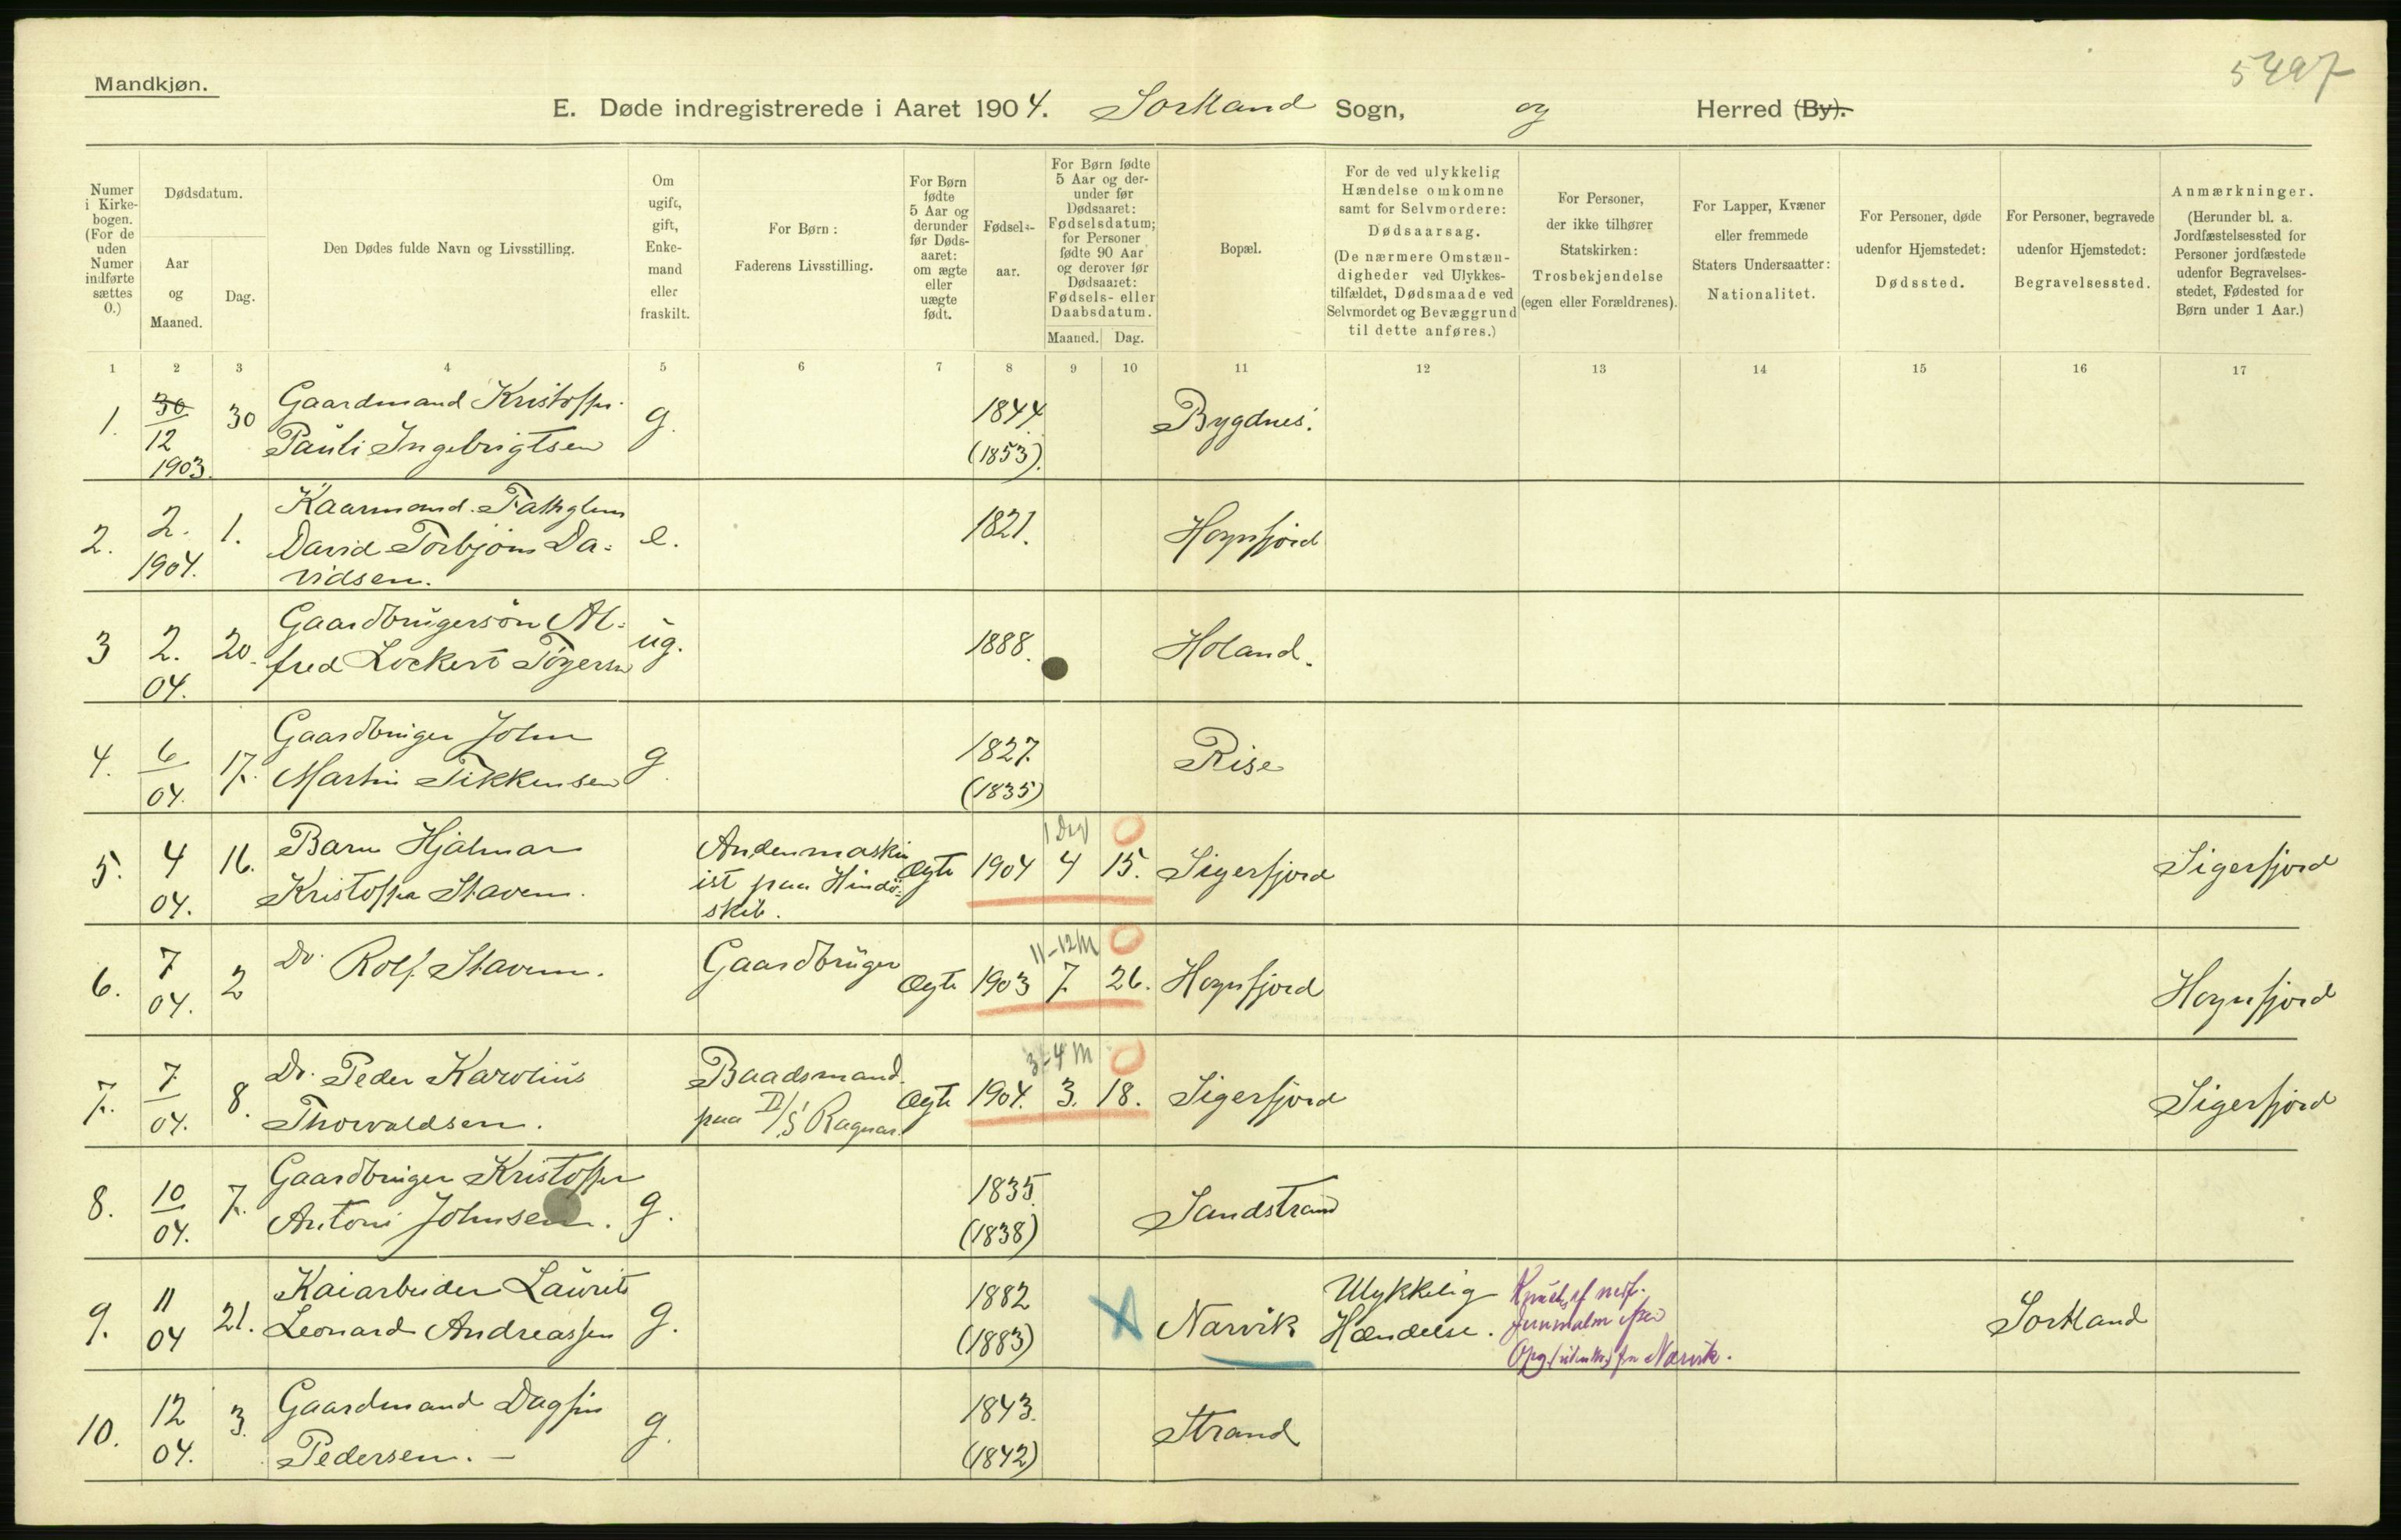 5497
Mandkjøn.
E. Døde indregistrerede i Aaret 1904. Sortland Sogn, og Herred (By).
Numer i Kirkebogen. (For de uden Numer indførte sættes 0.)
Dødsdatum.
Aar og Maaned.
Dag.
Den Dødes fulde Navn og Livsstilling.
Om ugift, gift, Enkemand eller fraskilt.
For Børn:
Faderens Livsstilling.
For Børn fødte 5 Aar og derunder før Dødsaaret: om ægte eller uægte født.
Fødselsaar.
For Børn fødte 5 Aar og derunder før Dødsaaret: Fødselsdatum; for Personer fødte 90 Aar og derover før Dødsaaret: Fødsels- eller Daabsdatum.
Maaned. Dag.
Bopæl.
For de ved ulykkelig Hændelse omkomne samt for Selvmordere: Dødsaarsag.
(De nærmere Omstændigheder ved Ulykkestilfældet, Dødsmaade ved Selvmordet og Bevæggrund til dette anføres.)
For Personer, der ikke tilhører Statskirken: Trosbekjendelse (egen eller Forældrenes).
For Lapper, Kvæner eller fremmede Staters Undersaatter: Nationalitet.
For Personer, døde udenfor Hjemstedet: Dødssted.
For Personer, begravede udenfor Hjemstedet: Begravelsessted.
Anmærkninger.
(Herunder bl. a. Jordfæstelsessted for Personer jordfæstede udenfor Begravelsesstedet, Fødested for Børn under 1 Aar.)
1 2 3 4 5 6 7 8 9 10 11 12 13 14 15 16 17
1. 30 30 Gaardmand Kristoffer g. 1844 Bygdnes.
12 Pauli Ingebrigtsen (1853).
1903.
2. 2. 1. Kaarmand. e. 1821. Hognfjord
1904. David Torbjørn Da-
vidsen.
3 2. 20. Gaardbrugersøn Al- ug. 1888. Holand.
04. fred Lockert Tögersen
4. 6 17. Gaardbruger John g. 1827. Rise
04. Martin Tikkensen (1835)
5. 4 16. Barn Hjalmar Andenmaskin- Ægte 1904 4 15. Sigerfjord Sigerfjord
04. Kristoffer Stavem. ist paa Hindö-
skib.
6. 7 2 Do. Rolf Stavem. Gaardbruger Ægte 1903 7. 26. 11-12 M 0 Hognfjord Hognfjord
04.
7. 7 8. Do. Peder Karolius Baadsmand Ægte 1904. 3. 18. 3-4 M 0 Sigerfjord Sigerfjord
04. Thorvaldsen. paa D/S Ragnar.
8. 10 7. Gaardbruger Kristoffer g. 1835. Sandstrand
04. Antoni Johnsen. (1838)
9. 11 21. Kaiarbeider Laurits g. 1882 Narvik Ulykkelig Sortland
04 Leonard Andreassen (1883) Hændelse.
Knust af nedf.
Jernmalm
Narvik.
10. 12 3. Gaardmand Dagfin g. 1843. Strand
04. Pedersen. – (1842)